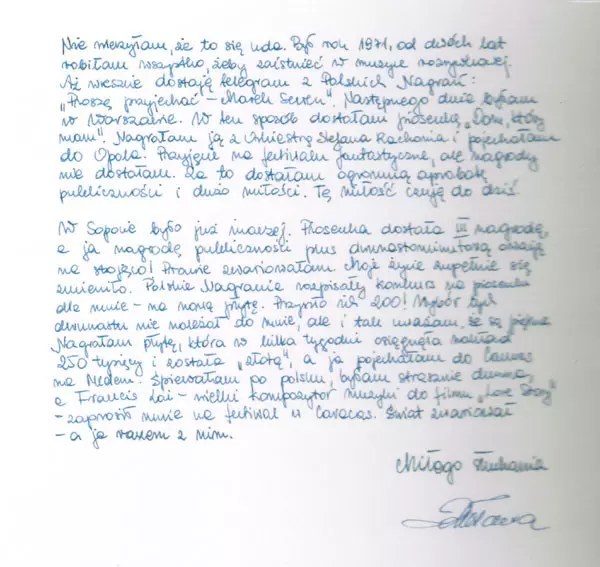 Nie wierzyłam, że to się uda. Był rok 1971, od dwóch lat
robiłam wszystko, żeby zaistnieć w muzyce rozrywkowej.
Aż wreszcie dostaję telegram z Polskich Nagrań:
"Proszę przyjechać – Marek Sewen". Następnego dnia byłam
w Warszawie. W ten sposób dostałam piosenkę "Dom, który
mam". Nagrałam ją z Orkiestrą Stefana Rachonia i pojechałam
do Opola. Przyjęcie na festiwalu fantastyczne, ale nagrody
nie dostałam. Za to dostałam ogromną aprobatę
publiczności i dużo miłości. Tę miłość czuję do dziś.
W Sopocie było już inaczej. Piosenka dostała III nagrodę,
a ja nagrodę publiczności plus dwunastominutową owację
na stojąco! Prawie zwariowałam. Moje życie zupełnie się
zmieniło. Polskie Nagrania rozpisały konkurs na piosenki
dla mnie – na nową płytę. Przyszło ich 200! Wybór tych
dwunastu nie należał do mnie, ale i tak uważam, że są piękne.
Nagrałam płytę, która w kilka tygodni osiągnęła nakład
250 tysięcy i została "złotą", a ja pojechałam do Cannes
na Midem. Śpiewałam po polsku, byłam strasznie dumna,
a Francis Lai – wielki kompozytor muzyki do filmu "Love Story"
– zaprosił mnie na festiwal w Caracas. Świat zwariował
– a ja razem z nim.
Miłego słuchania